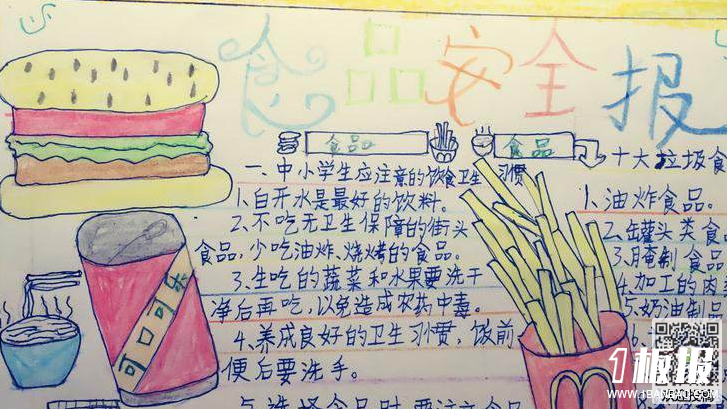 食品安全报
食品
食品
一、中小学生应注意的饮食卫生习惯
1.白开水是最好的饮料。
2、不吃无卫生保障的街头
食品,少吃油炸、烧烤的食品。
3、生吃的蔬菜和水果要洗干
净后再吃,以免造成农药中毒。
4、养成良好的卫生习惯,饭前
便后要洗手。
5、选择食品时要注意食品
十大垃圾食
1.油炸食品。
2、罐头类食品
3、腌制食品
4.加工的肉
5、奶油制品
6、
可口可乐
1板报
WWW.1BANBAO.COM